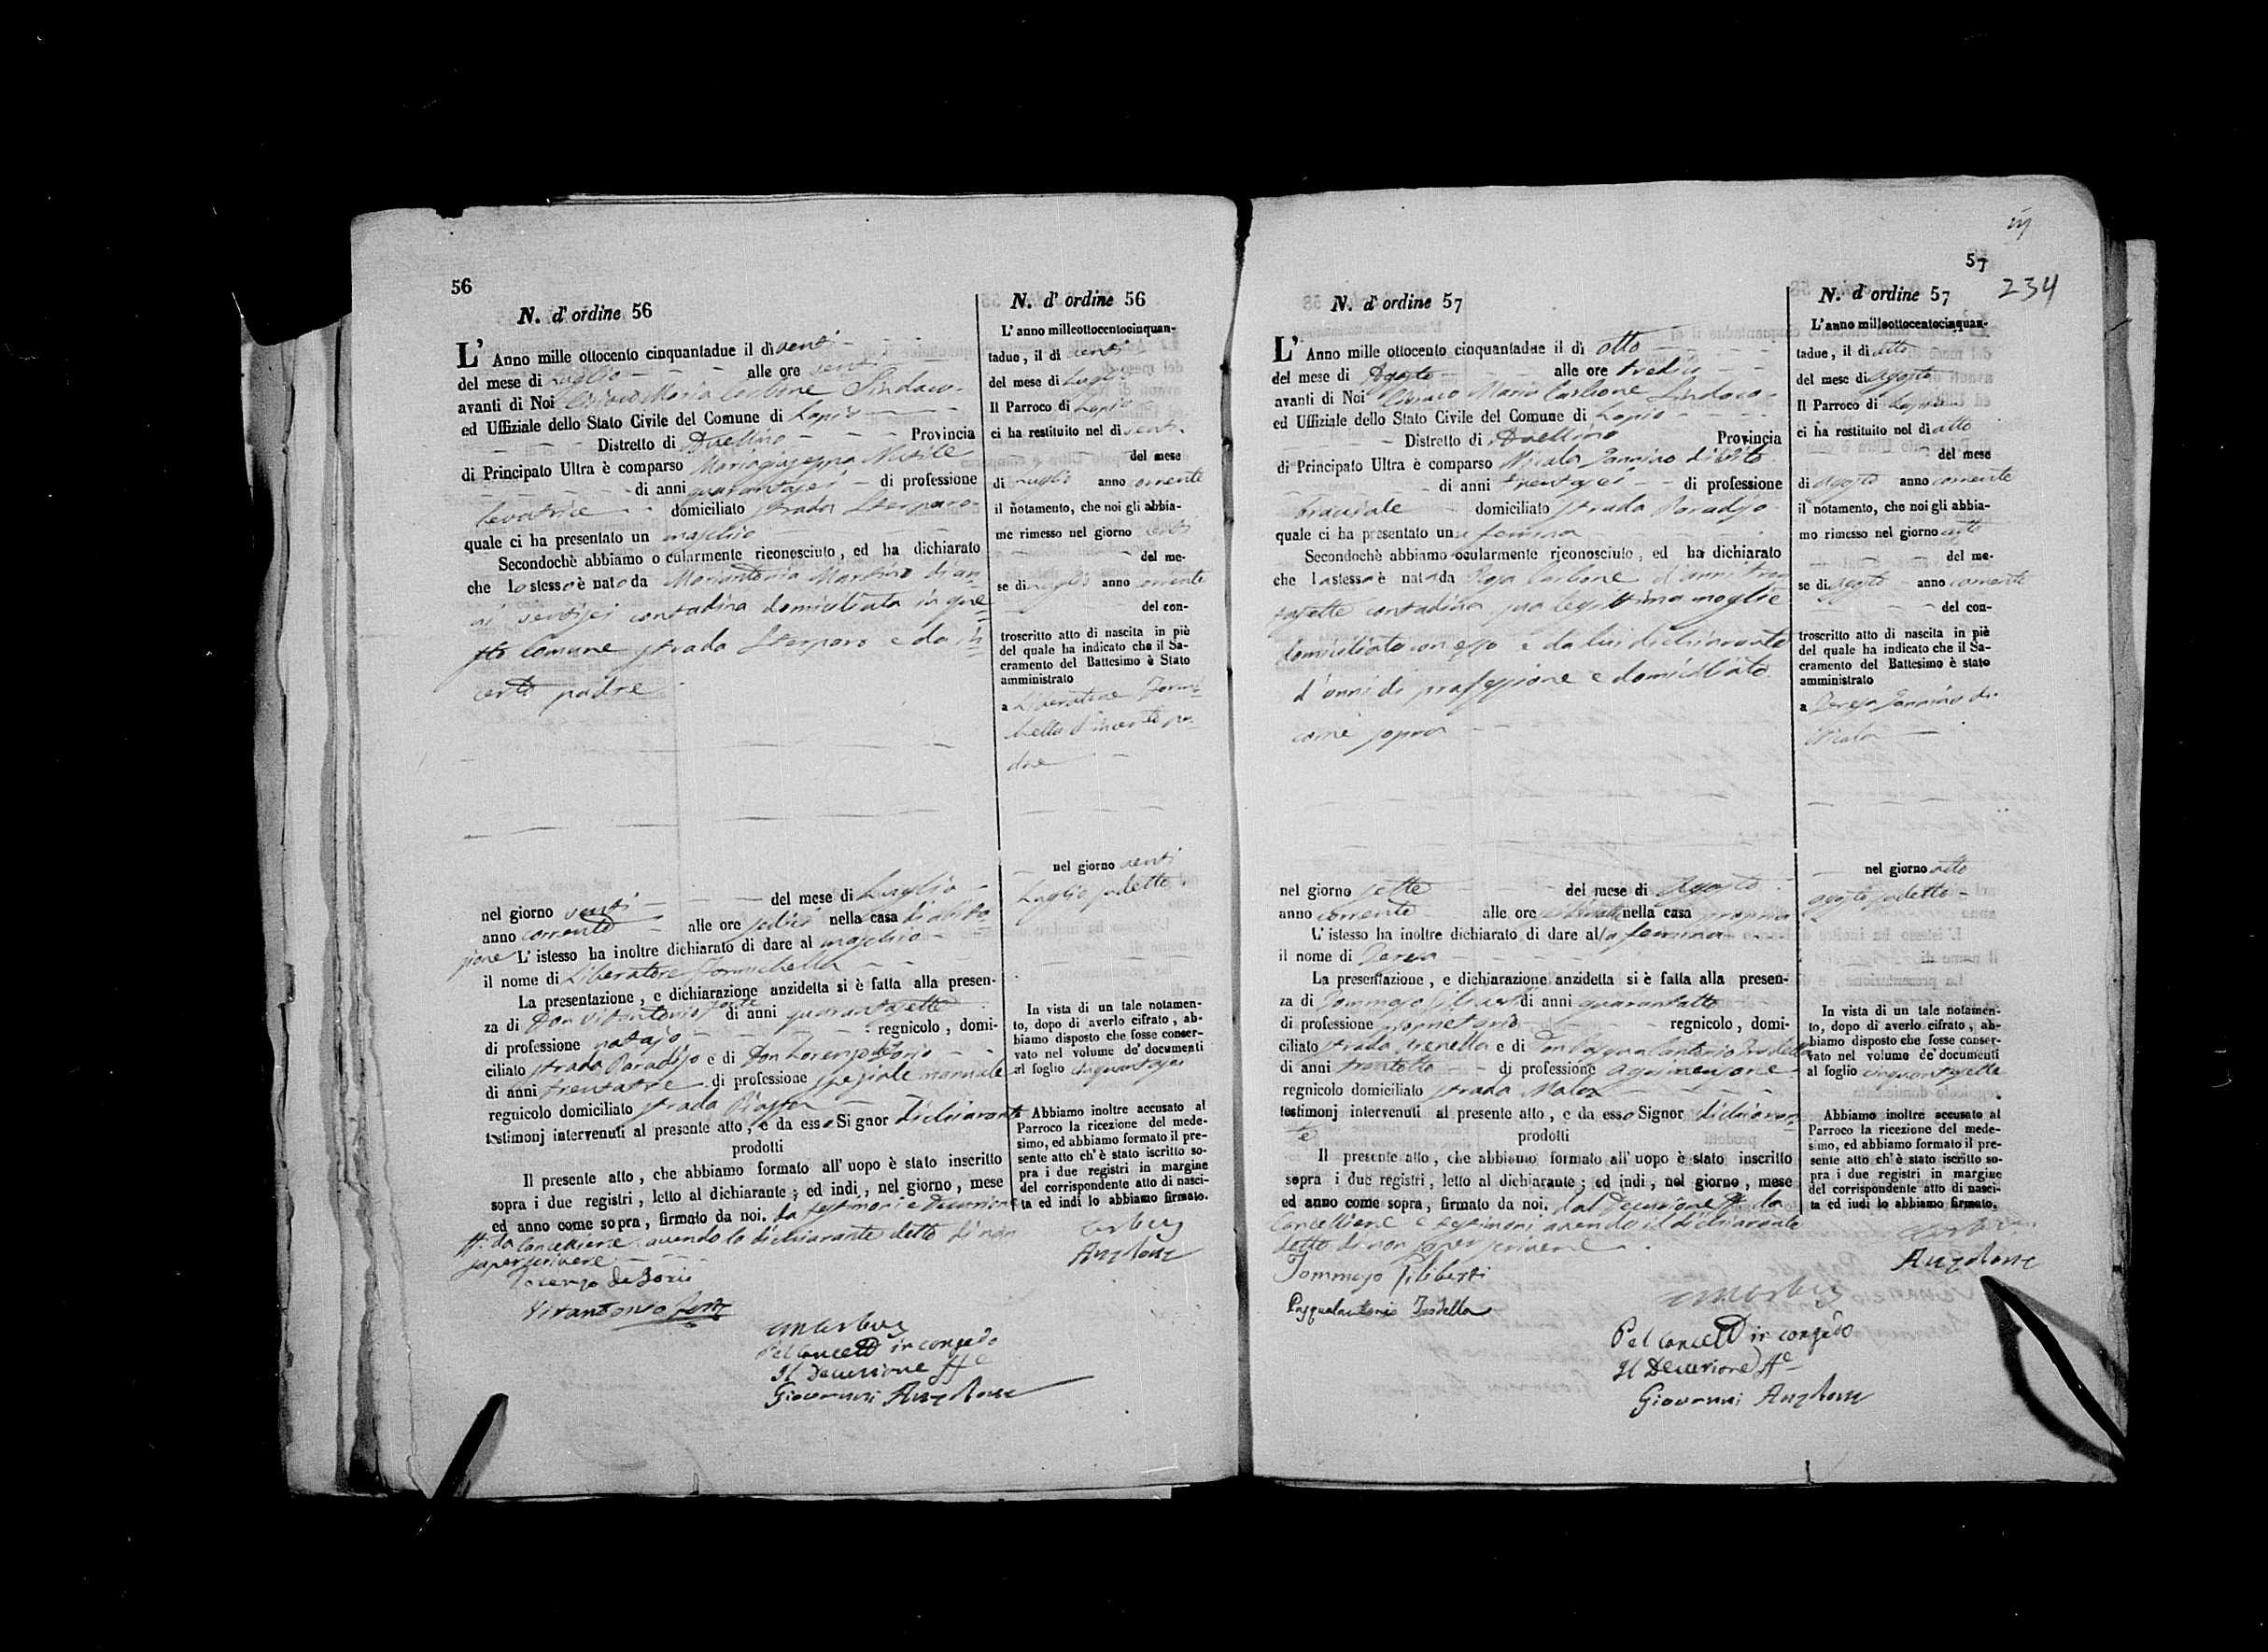 56
N. d' ordine 56
L' Anno mille ottocento cinquantadue il dì venti
del mese di Luglio alle ore venti
avanti di Noi Ciriaco Maria Carbone Sindaco
ed Uffiziale dello Stato Civile del Comune di Lapio
Distretto di Avellino Provincia
di Principato Ultra è comparso Mariagiuseppa
di anni quarantasei di professione
levatrice domiciliato strada Sterparo
quale ci ha presentato un maschio
Secondochè abbiamo o cularmente riconosciuto, ed ha dichiarato
che lo stesso è nato da Mariantonia Martino di an=
ni ventisei contadina domiciliata in que=
sto Comune strada Sterparo e da in=
certo padre
nel giorno venti del mese di Luglio
anno corrente alle ore sedici nella casa di abita
zione L' istesso ha inoltre dichiarato di dare al maschio
il nome di Liberatore Formichella
La presentazione, e dichiarazione anzidetta si è fatta alla presen-
za di Don Vitantonio Forte di anni quarantasette
di professione notajo regnicolo, domi-
ciliato strada Paradiso e di Don Lorenzo de Iorio
di anni trentatre di professione speziale manuale
regnicolo domiciliato strada Piazza
testimonj intervenuti al presente atto, e da esso Signor dichiarante
prodotti
Il presente atto, che abbiamo formato all' uopo è stato inscritto
sopra i due registri, letto al dichiarante; ed indi, nel giorno, mese
ed anno come sopra, firmato da noi. da testimoni e Decurione
ff. da Cancelliere avendo la dichiarante detto di non
saper scrivere
Lorenzo de Iorio
Vitantonio Forte
Pel Cancell in congedo
Il Decurione ff
Giovanni Anzalone
N. d' ordine 56
L' anno milleottocentocinquan-
tadue, il dì venti
del mese di Luglio
Il Parroco di Lapio
ci ha restituito nel dì venti
del mese
di Luglio anno corrente
il notamento, che noi gli abbia-
mo rimesso nel giorno venti
del me-
se di Luglio anno corrente
del con-
troscritto atto di nascita in piè
del quale ha indicato che il Sa-
cramento del Battesimo è Stato
amministrato
a Liberatore Formi=
chella d'incerto pa=
dre
nel giorno venti
Luglio sudetto.
In vista di un tale notamen-
to, dopo di averlo cifrato, ab-
biamo disposto che fosse conser-
vato nel volume de' documenti
al foglio cinquantasei
Abbiamo inoltre accusato al
Parroco la ricezione del mede-
simo, ed abbiamo formato il pre-
sente atto ch' è stato iscritto so-
pra i due registri in margine
del corrispondente atto di nasci-
ta ed indi lo abbiamo firmato.
Anzalone
57
234
N. d' ordine 57
L' Anno mille ottocento cinquantadue il dì otto
del mese di Agosto alle ore tredici
avanti di Noi Ciriaco Maria Carbone Sindaco
ed Uffiziale dello Stato Civile del Comune di Lapio
Distretto di Avellino Provincia
di Principato Ultra è comparso Nicola Jannino di Vito
di anni trentasei di professione
bracciale domiciliato strada Paradiso
quale ci ha presentato una femina
Secondochè abbiamo ocularmente riconosciuto, ed ha dichiarato
che la stessa è nata da Rosa Carbone d'anni tren
tasette contadina sua legittima moglie
domiciliata con esso e da lui dichiarante
d'anni di professione e domiciliato
come sopra
nel giorno sette del mese di Agosto
anno corrente alle ore nella casa propria
L' istesso ha inoltre dichiarato di dare alla femina
il nome di Teresa
La presentazione, e dichiarazione anzidetta si è fatta alla presen-
za di Tommaso Filiberti di anni quarantotto
di professione regnicolo, domi-
ciliato strada e di Don Pasqualantonio Iradella
di anni trentotto di professione agrimensore
regnicolo domiciliato strada
testimonj intervenuti al presente atto, e da esso Signor dichiaran=
te
prodotti
Il presente atto, che abbiamo formato all' uopo è stato inscritto
sopra i due registri, letto al dichiarante; ed indi, nel giorno, mese
ed anno come sopra, firmato da noi. dal Decurione ff. da
Cancelliere e testimoni avendo il dichiarante
detto di non saper scrivere.
Tommaso Filiberti
Pasqualantonio Iradella
Pel Cancell in congedo
Il Decurione ff
Giovanni Anzalone
N. d' ordine 57
L' anno milleottocentocinquan-
tadue, il dì otto
del mese di Agosto
Il Parroco di Lapio
ci ha restituito nel dì otto
del mese
di Agosto anno corrente
il notamento, che noi gli abbia-
mo rimesso nel giorno otto
del me-
se di Agosto anno corrente
del con-
troscritto atto di nascita in piè
del quale ha indicato che il Sa-
cramento del Battesimo è stato
amministrato
a Teresa Jannino di
Nicola
nel giorno otto
agosto sudetto
In vista di un tale notamen-
to, dopo di averlo cifrato, ab-
biamo disposto che fosse conser-
vato nel volume de' documenti
al foglio cinquantasette
Abbiamo inoltre accusato al
Parroco la ricezione del mede-
simo, ed abbiamo formato il pre-
sente atto ch' è stato iscritto so-
pra i due registri in margine
del corrispondente atto di nasci-
ta ed indi lo abbiamo firmato.
Anzalone